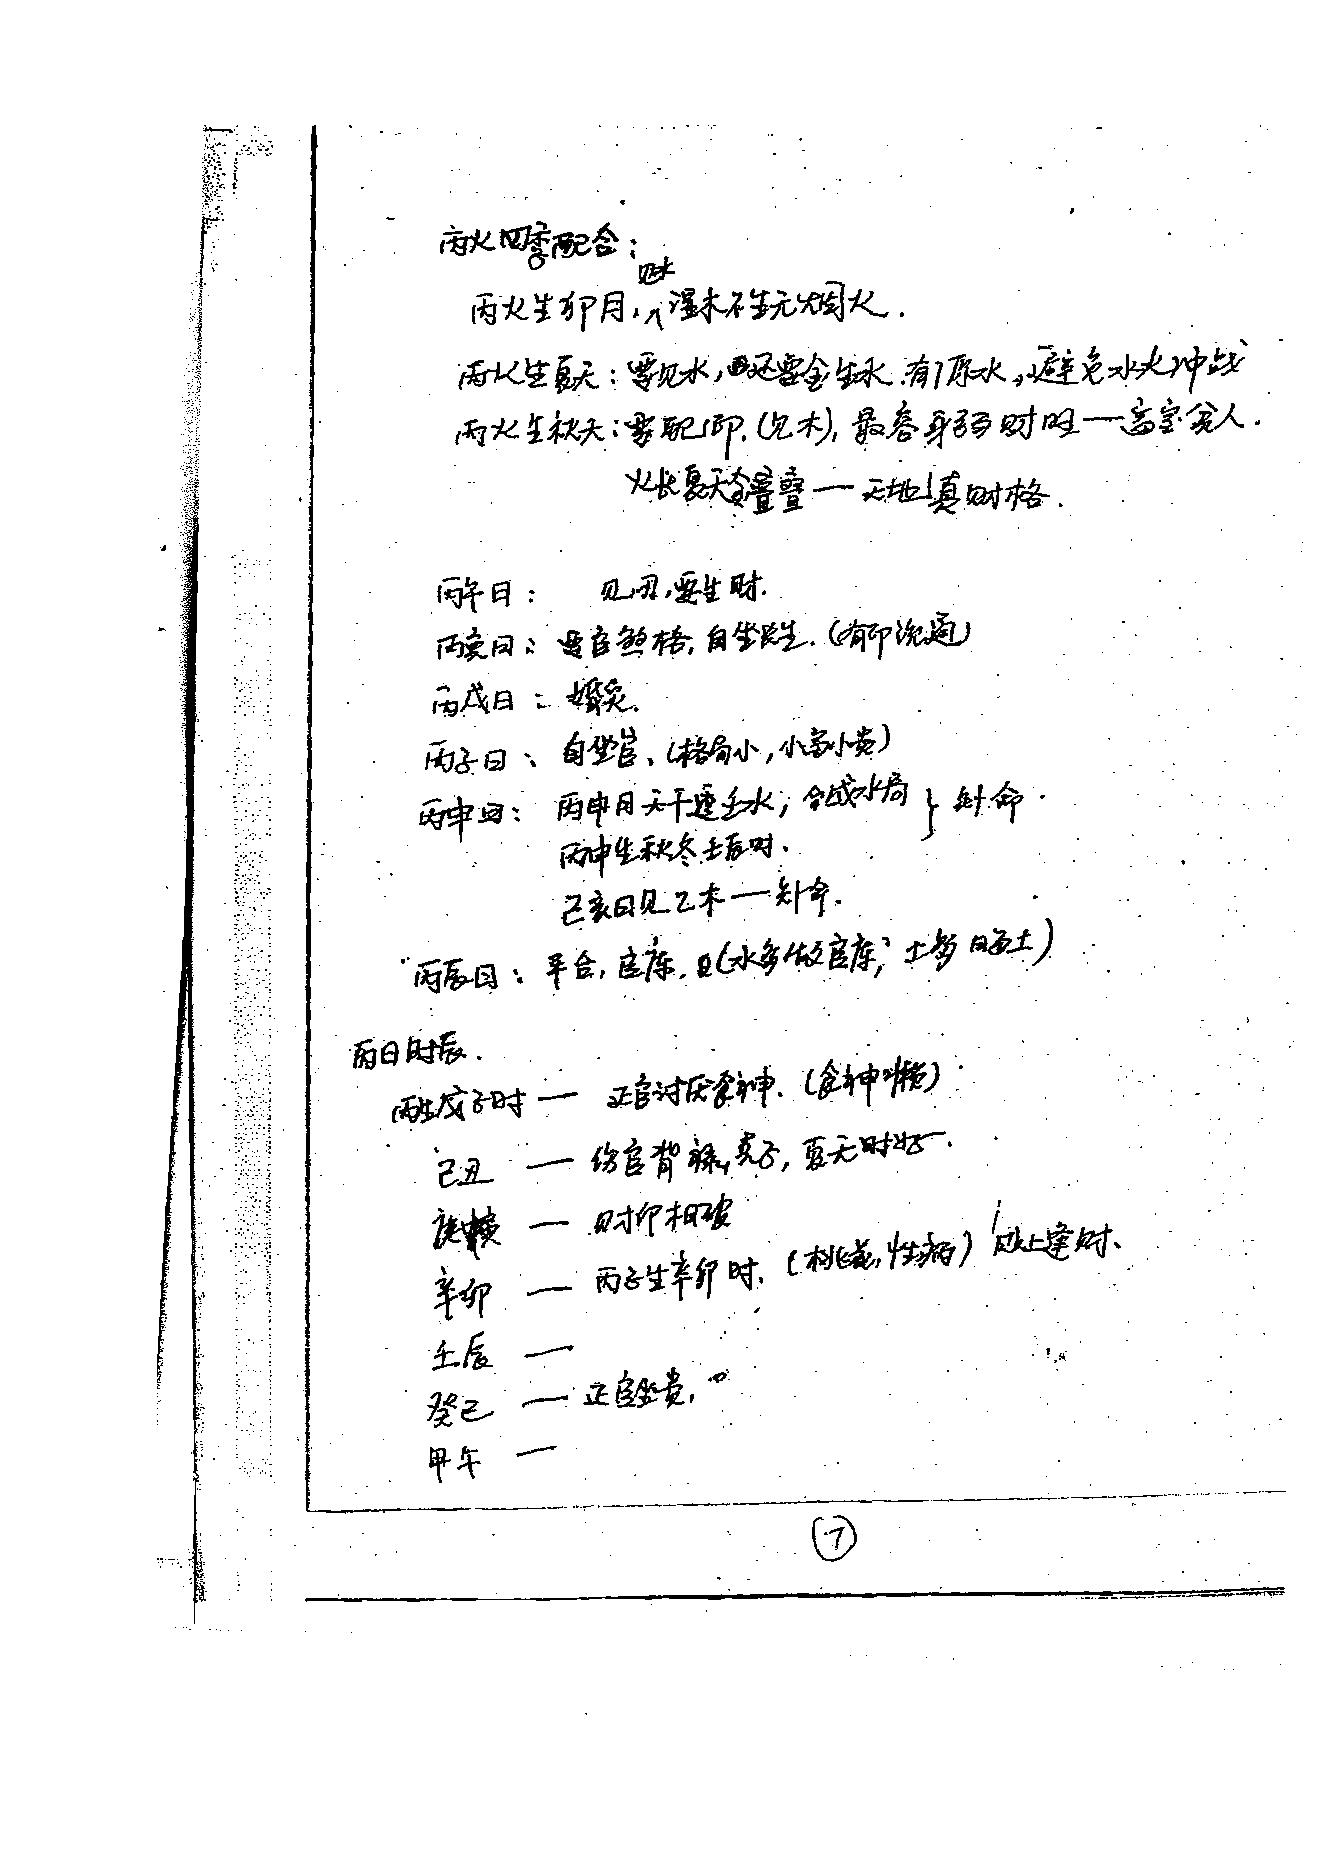 丙火四季配合:
丙火生卯月,见水湿木不生无焰火.
丙火生夏天:要见水,还要金生水.有源水,避免水火冲战
丙火生秋天:要配印.(见木),最忌身弱财旺—富室贫人.
火长夏天金叠叠—天地真财格.
丙午日: 见丑,要生财.
丙寅日:要官煞格,自坐长生.(有印流通)
丙戌日:婚灾.
丙子日:自坐官、(格局小,小富小贵)
丙申日:丙申月天干透壬水,合成水局 } 夭命.
丙申生秋冬壬辰时.
己亥日见乙木—夭命.
丙辰日:平合,官库.见(水多做官库;土多晦土)
丙日时辰.
丙生戊子时—正官讨厌食神.(食神懒)
己丑—伤官背禄,克子,夏天时好.
庚寅—财印相破
辛卯—丙子生辛卯时.(桃花,性病)时上逢财、
壬辰—
癸巳—正官坐贵,
甲午—
7